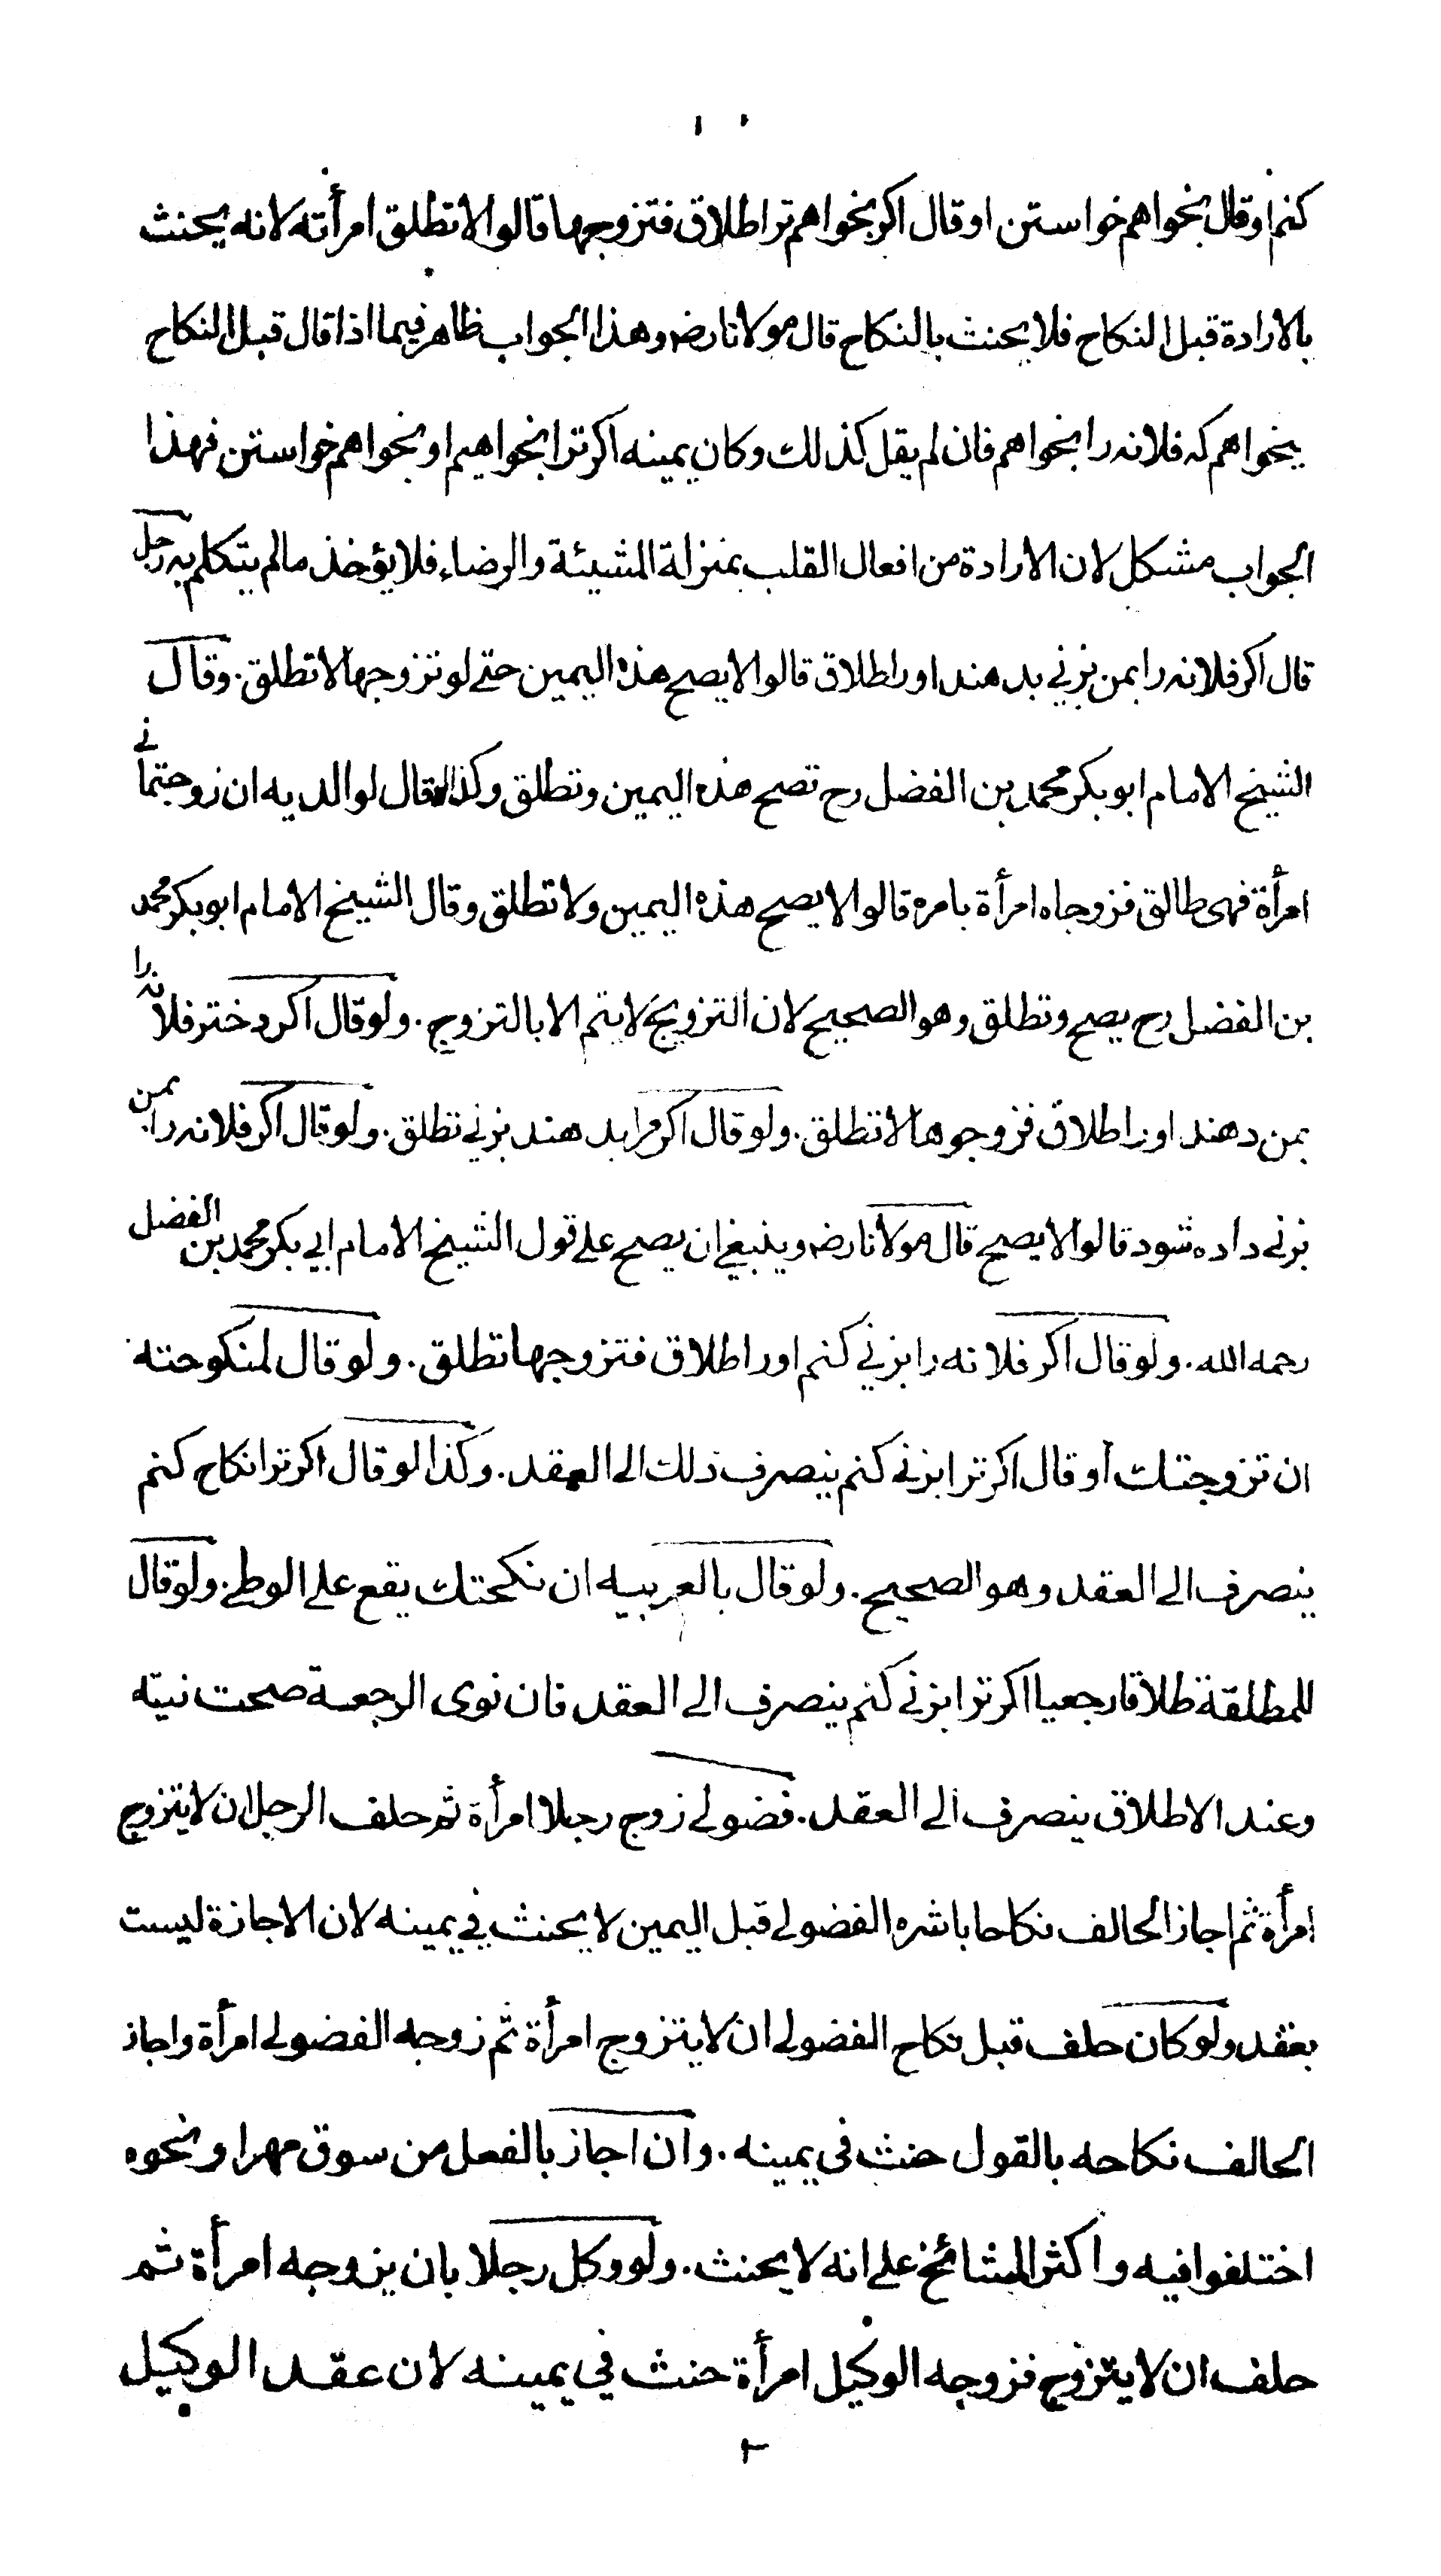 كنم اوقال بخواهم خواستن اوقال اكر بخواهم ترا طلاق فتزوجها قالوا لا تطلق امرأته لانه يحنث
بالارادة قبل النكاح فلا يحنث بالنكاح قال مولانا رضـ وهذا الجواب ظاهر فيما اذا قال قبل النكاح
بخواهم كه فلانه را بخواهم فان لم يقل كذلك وكان يمينه اكر ترا بخواهيم او بخواهم خواستن فهذا
الجواب مشكل لان الارادة من افعال القلب بمنزلة المشيئة والرضاء فلا يؤخذ مالم يتكلم به رجل
قال اكر فلانه را بمن بزني بدهند اورا طلاق قالوا لا يصح هذه اليمين حتے لو تزوجها لا تطلق. وقال
الشيخ الامام ابو بكر محمد بن الفضل رح تصح هذه اليمين وتطلق وكذا لو قال لوالديه ان زوجتمانے
امرأة فهى طالق فزوجاه امرأة بامره قالوا لا يصح هذه اليمين ولا تطلق وقال الشيخ الامام ابو بكر محمد
بن الفضل رح يصح وتطلق وهو الصحيح لان التزويج لا يتم الا بالتزوج. ولو قال اكر دختر فلانه را
بمن دهند اورا طلاق فزوجوها لا تطلق. ولو قال اكر مرا بدهند بزنے تطلق. ولو قال اكر فلانه را بمن
بزنے داده شود قالوا لا يصح قال مولانا رضـ وينبغے ان يصح علے قول الشيخ الامام ابي بكر محمد بن الفضل
رحمه الله. ولو قال اكر فلانه را بزني كنم اورا طلاق فتزوجها تطلق. ولو قال لمنكوحته
ان تزوجتك أو قال اكر ترا بزنے كنم ينصرف ذلك الے العقد. وكذا لو قال اكر ترا نكاح كنم
ينصرف الے العقد وهو الصحيح. ولو قال بالعربيه ان نكحتك يقع علے الوطے. ولو قال
للمطلقة طلاقا رجعيا اكر ترا بزنے كنم ينصرف الے العقد فان نوى الرجعة صحت نيته
وعند الاطلاق ينصرف الے العقد. فضولے زوج رجلا امرأة ثم حلف الرجل ان لا يتزوج
امرأة ثم اجاز الحالف نكاحا باشره الفضولے قبل اليمين لا يحنث في يمينه لان الاجازة ليست
بعقد ولو كان حلف قبل نكاح الفضولے ان لا يتزوج امرأة ثم زوجه الفضولے امرأة واجاز
الحالف نكاحه بالقول حنث فى يمينه. وان اجاز بالفعل من سوق مهر او نحوه
اختلفوا فيه واكثر المشائخ علے انه لا يحنث. ولو وكل رجلا بان يزوجه امرأة ثم
حلف ان لا يتزوج فزوجه الوكيل امرأة حنث في يمينه لان عقد الوكيل
٢